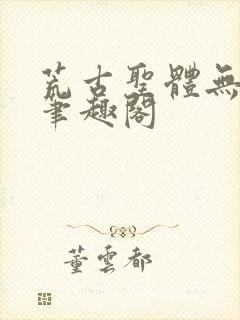 荒古聖體無
筆趣閣
董雲都